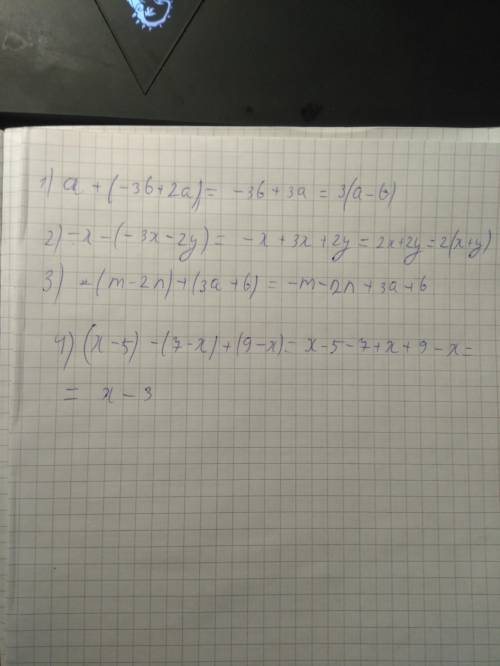 1) a + (-3b+2a) = -3b+3a = 3(a-b)
2) -x-(-3x-2y) = -x+3x+2y=2x+2y=2(x+y)
3) -(m-2n)+(3a+b) = -m-2n+3a+b
4) (x-5)-(7-x)+(9-x)= x-5-7+x+9-x=
= x-3